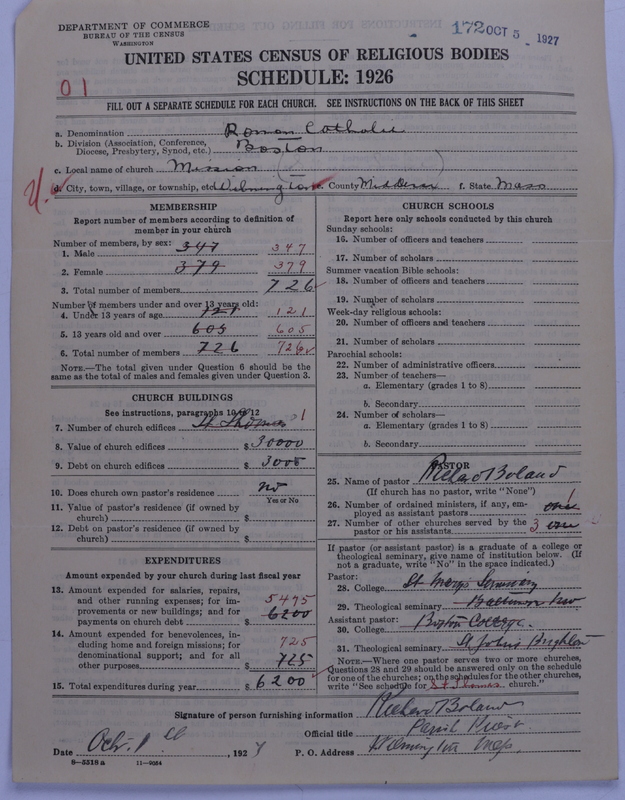 DEPARTMENT OF COMMERCE
BUREAU OF THE CENSUS
WASHINGTON
172 OCT 5 1927
UNITED STATES CENSUS OF RELIGIOUS BODIES
SCHEDULE: 1926
01
FILL OUT A SEPARATE SCHEDULE FOR EACH CHURCH. SEE INSTRUCTIONS ON THE BACK OF THIS SHEET
a. Denomination Roman Catholic
b. Division (Association, Conference, Diocese, Presbytery, Synod, etc.) Boston
c. Local name of church Mission
d. City, town, village, or township, etc. Wilmington e. County Middlesex f. State Mass
MEMBERSHIP
Report number of members according to definition of
member in your church
Number of members, by sex:
1. Male 347 347
2. Female 379 379
3. Total number of members 726
Number of members under and over 13 years old:
4. Under 13 years of age 121 121
5. 13 years old and over 605 605
6. Total number of members 726 726
NOTE.—The total given under Question 6 should be
same as the total of males and females given under Question 3.
CHURCH BUILDINGS
See instructions, paragraphs 10 to 12
7. Number of church edifices St Thomas 1
8. Value of church edifices $ 30000
9. Debt on church edifices $ 3000
10. Does church own pastor's residence no
Yes or No
11. Value of pastor's residence (if owned by
church) $
12. Debt on pastor's residence (if owned by
church) $
EXPENDITURES
Amount expended by your church during last fiscal year
13. Amount expended for salaries, repairs,
and other running expenses; for im-
provements or new buildings; and for
payments on church debt $ 5475 6200
14. Amount expended for benevolences, in-
cluding home and foreign missions; for
denominational support; and for all
other purposes $ 725 725
15. Total expenditures during year $ 6200
CHURCH SCHOOLS
Report here only schools conducted by this church
Sunday schools:
16. Number of officers and teachers
17. Number of scholars
Summer vacation Bible schools:
18. Number of officers and teachers
19. Number of scholars
Week-day religious schools:
20. Number of officers and teachers
21. Number of scholars
Parochial schools:
22. Number of administrative officers
23. Number of teachers—
a. Elementary (grades 1 to 8)
b. Secondary
24. Number of scholars—
a. Elementary (grades 1 to 8)
b. Secondary
PASTOR
25. Name of pastor Richard Boland
(If church has no pastor, write "None")
26. Number of ordained ministers, if any, em-
ployed as assistant pastors one 1
27. Number of other churches served by the
pastor or his assistants 3 one 2
If pastor (or assistant pastor) is a graduate of a college or
theological seminary, give name of institution below. (If
not a graduate, write "No" in the space indicated.)
Pastor:
28. College St Marys Seminary
29. Theological seminary Baltimore
Assistant pastor:
30. College Boston College
31. Theological seminary St Johns Brighton
NOTE.—Where one pastor serves two or more churches,
Questions 28 and 29 should be answered only on the schedule
for one of the churches; on the schedules for the other churches,
write "See schedule for St Thomas church."
Signature of person furnishing information Richard Boland
Official title Parish Priest
Date Oct. 1 , 192 P. O. Address Wilmington Mass.
8—5518 a 11—5034